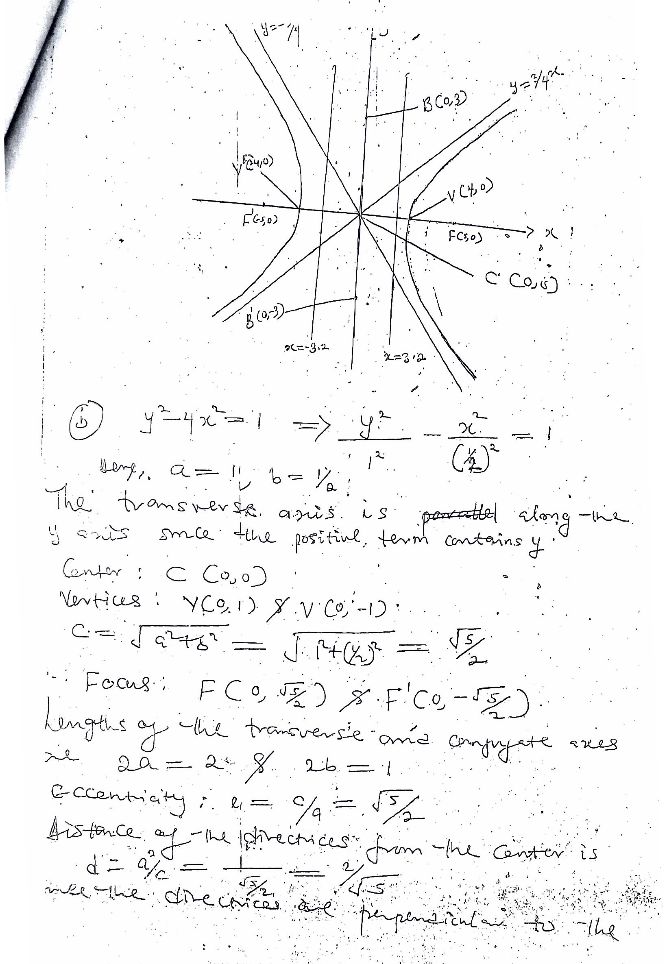 y=-¾
y
B(0,3)
y=¾x
V'(-4,0)
V(4,0)
F'(-5,0)
F(5,0)
x
C (0,0)
B'(0,-3)
x=-3.2
x=3.2
(b) y²-4x²=1 => y²/1² - x²/(½)² = 1
Here, a = 1, b = ½
The transverse axis is along the
y axis since the positive term contains y.
Center : C (0,0)
Vertices : V(0,1) & V'(0,-1)
C = √a²+b² = √1²+(½)² = √5/2
∴ Focus : F(0, √5/2) & F'(0, -√5/2).
Lengths of the transverse and conjugate axes
are 2a = 2 & 2b = 1
Eccentricity : e = c/a = √5/2
Distance of the directrices from the center is
d = a²/c = 1/(√5/2) = 2/√5
the directrices are perpendicular to the